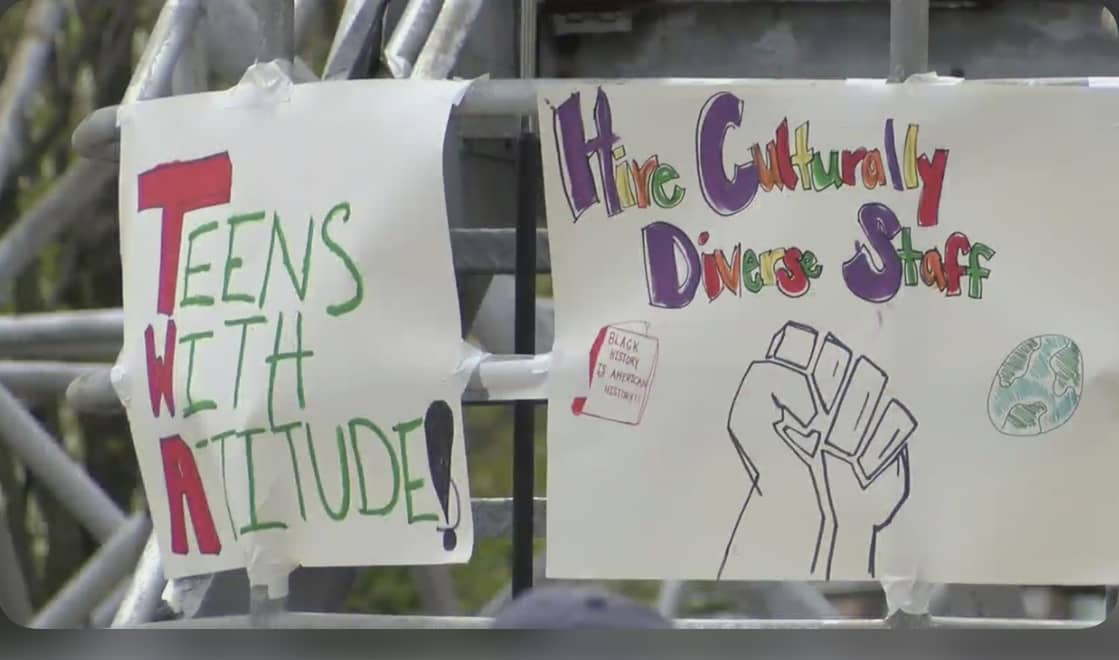 TEENS
WITH
ATTITUDE!
Hire Culturally
Diverse Staff
BLACK
HISTORY
IS AMERICAN
HISTORY!!